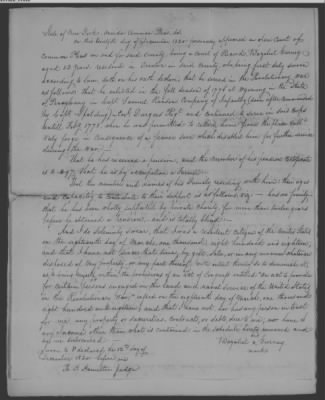 State of New York Orleans Common Pleas to wit
On this twelfth day of December 1820 personally appeared in open Court of
Common Pleas in and for said county, being a court of Record, Wazabel
aged 63 years resident in in said County, who being first duly sworn
according to law, doth on his oath declare that he served in the Revolutionary war
as follows that he enlisted in the fall season of 1776 at Wyoming in the State
of Pennsylvania in Capt Samuel Ransom Company of Infantry (soon after commanded
by Capt Spalding) Col and continued to serve in said Corps
untill Feby 1778, when he was permitted to return home from the
Valey forge in Consequence of a sore which disabled him for further service
during the war
That he has received a pension, and the number of his pension Certificate
is That he is by occupation a Farmer
That the number and names of his Family residing with him their ages
and capacity to contribute to their support is as follows viz has no family
that he has been wholly supported by private charity, for more than twelve years
before he obtained a Pension, and is totally blind
And I do Solemnly swear, that I was a resident Citizen of the United States
on the eighteenth day of March, one thousand eight hundred and eighteen,
and that I have not since that time, by gift, sale, or in any manner whatever
disposed of my property, or any part thereof with intent thereby so to diminish it,
as to bring myself within the provisions of an Act of Congress entitled "An act to provide
for certain persons engaged in the land and naval service of the United States
in the Revolutionary War" passed on the eighteenth day of March, one thousand
eight hundred and eighteen, and that I have not nor has any person in trust
for me any property or securities, contracts, or debts due to me, nor have I
any Income other than what is contained in the schedule hereto annexed and
by me subscribed
Sworn to & declared, the 12th day of
December 1820 before me
mark
Judge